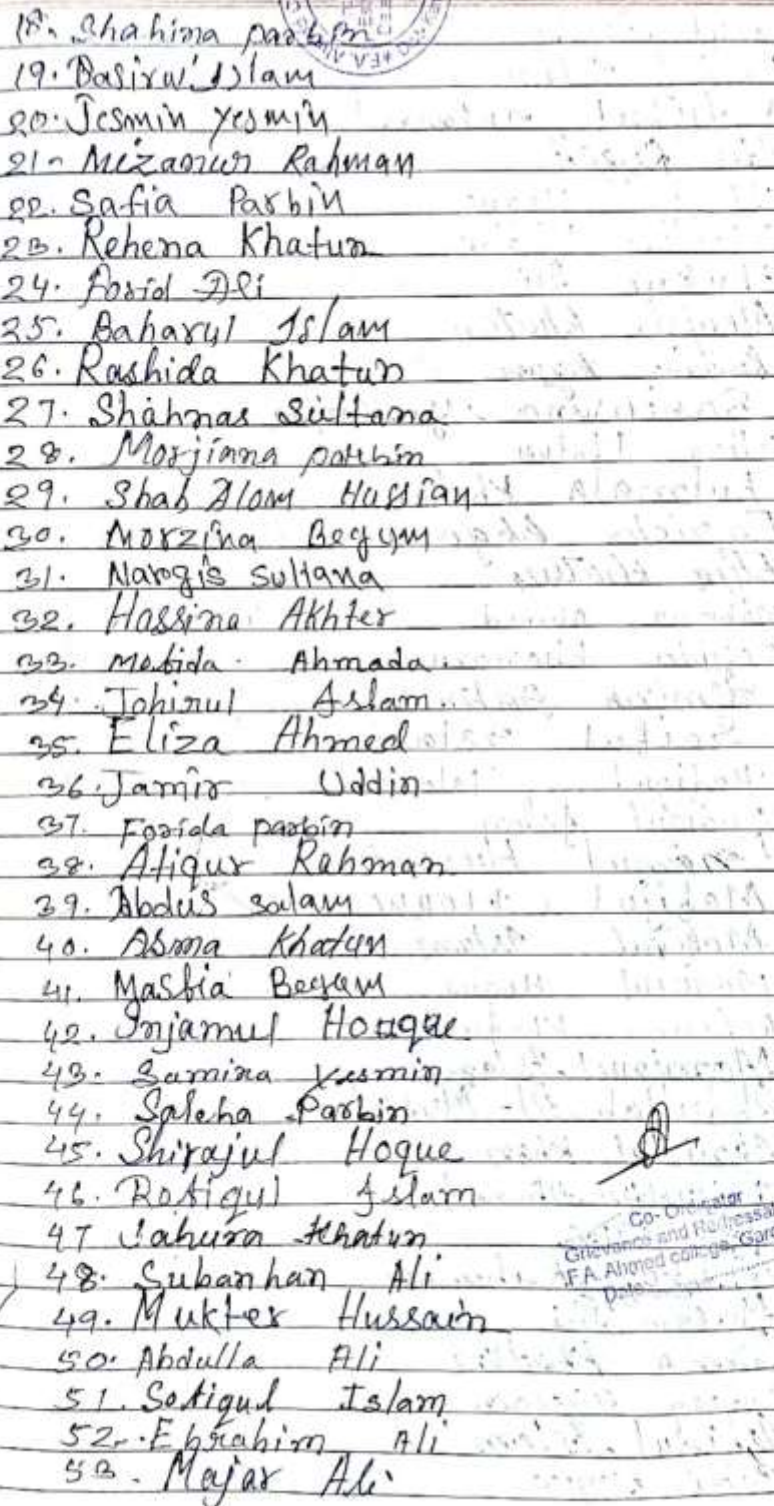 18. Shahima parbin
19. Basirul Islam
20. Jesmin yesmin
21- Mizanur Rahman
22. Safia Parbin
23. Rehena Khatun
24. Forid Ali
25. Baharul Islam
26. Rashida Khatun
27. Shahnas Sultana
28. Morjiana parbin
29. Shah Alom Hussian
30. Morzina Begum
31. Narogis sultana
32. Hassina Akhter
33. Ahmada
34. Johirul Aslam.
35. Eliza Ahmed
36. Jamir Uddin
37. Forida parbin
38. Atiqur Rahman
39. Abdus salam
40. Asma Khatun
41. Begam
42. Injamul Houque
43. Samina Yesmin
44. Saleha Parbin
45. Shirajul Hoque
46. Rofiqul Islam
47 Jahura Khatun
48. Subanhan Ali
49. Mukter Hussain
50. Abdulla Ali
51. Sofiqul Islam
52. Ebrahim Ali
53. Majar Ali
Co-Ordinator
Grievance and Redressal
F.A. Ahmed college, Garo
Date